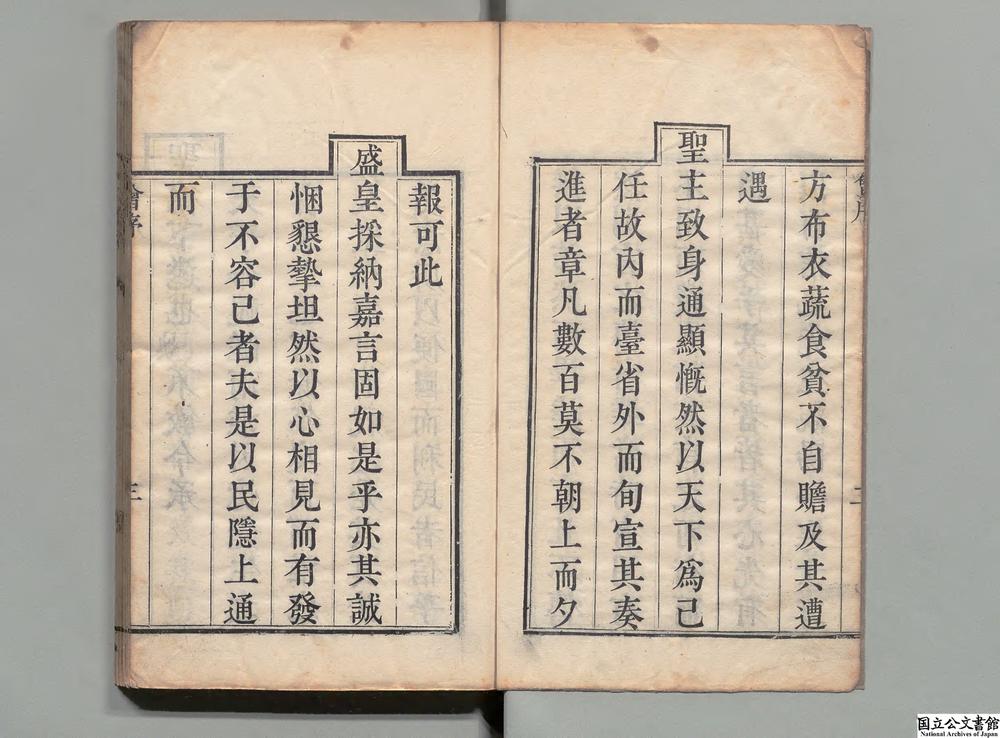 方布衣蔬食貧不自贍及其遭
遇
聖主致身通顯慨然以天下爲己
任故內而臺省外而旬宣其奏
進者章凡數百莫不朝上而夕
報可此
盛皇採納嘉言固如是乎亦其誠
悃懇摯坦然以心相見而有發
于不容已者夫是以民隱上通
而
三
国立公文書館
National Archives of Japan